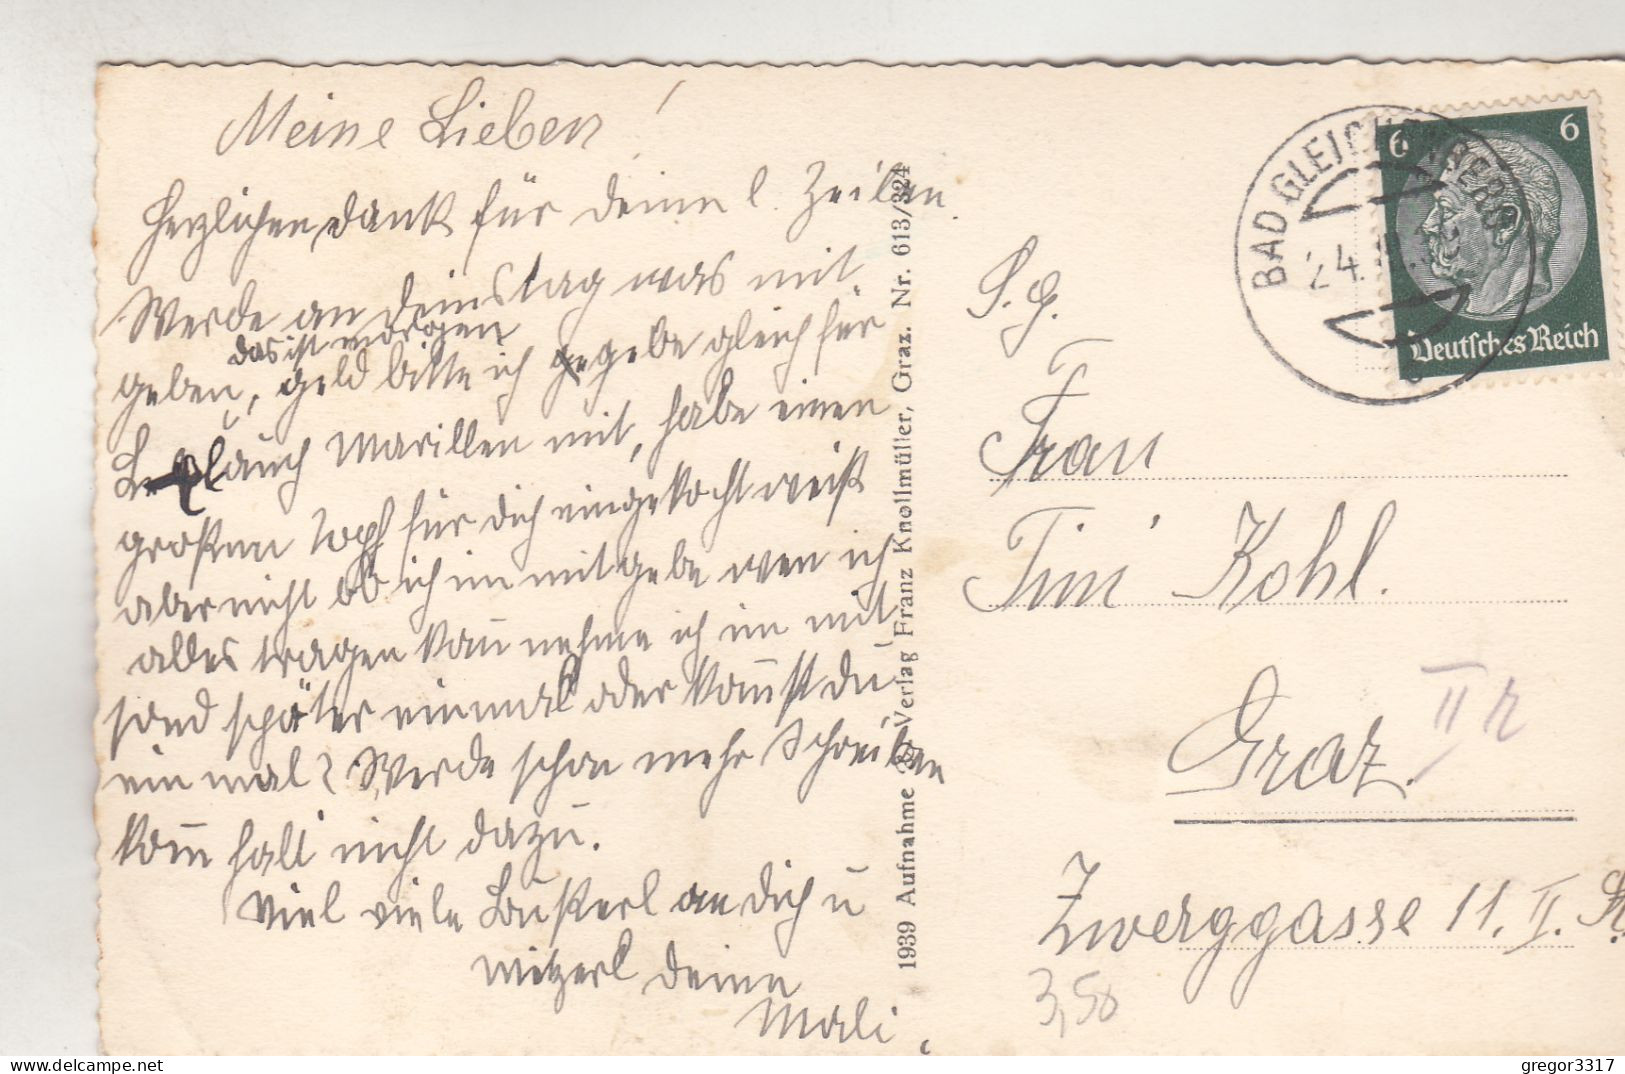 Meine Lieben!
Herzlichen dank für deine l. Zeilen.
Werde an dienstag was mit.
das ist morgen
geben, geld bitte ich gegebe gleich für
auch Marillen mit, habe einen
großen topf für dich eingekocht weiß
aber nicht ob ich im mitgebe wen ich
alles tragen kan nehme ich im mit
sond später einmal oder komst du
ein mal? Werde schon mehr Schreiben
kom halt nicht dazu.
Viel viele Busserl an dich u
Mitzerl deine
Mali.
1939 Aufnahme u. Verlag Franz Knollmüller, Graz. Nr. 613/324
BAD GLEICHENBERG
24.
6 6
Deutsches Reich
S. g.
Frau
Tini Kohl.
Graz.
II
Zwerggasse 11. II. St.
3,50
© delcampe.net
gregor3317